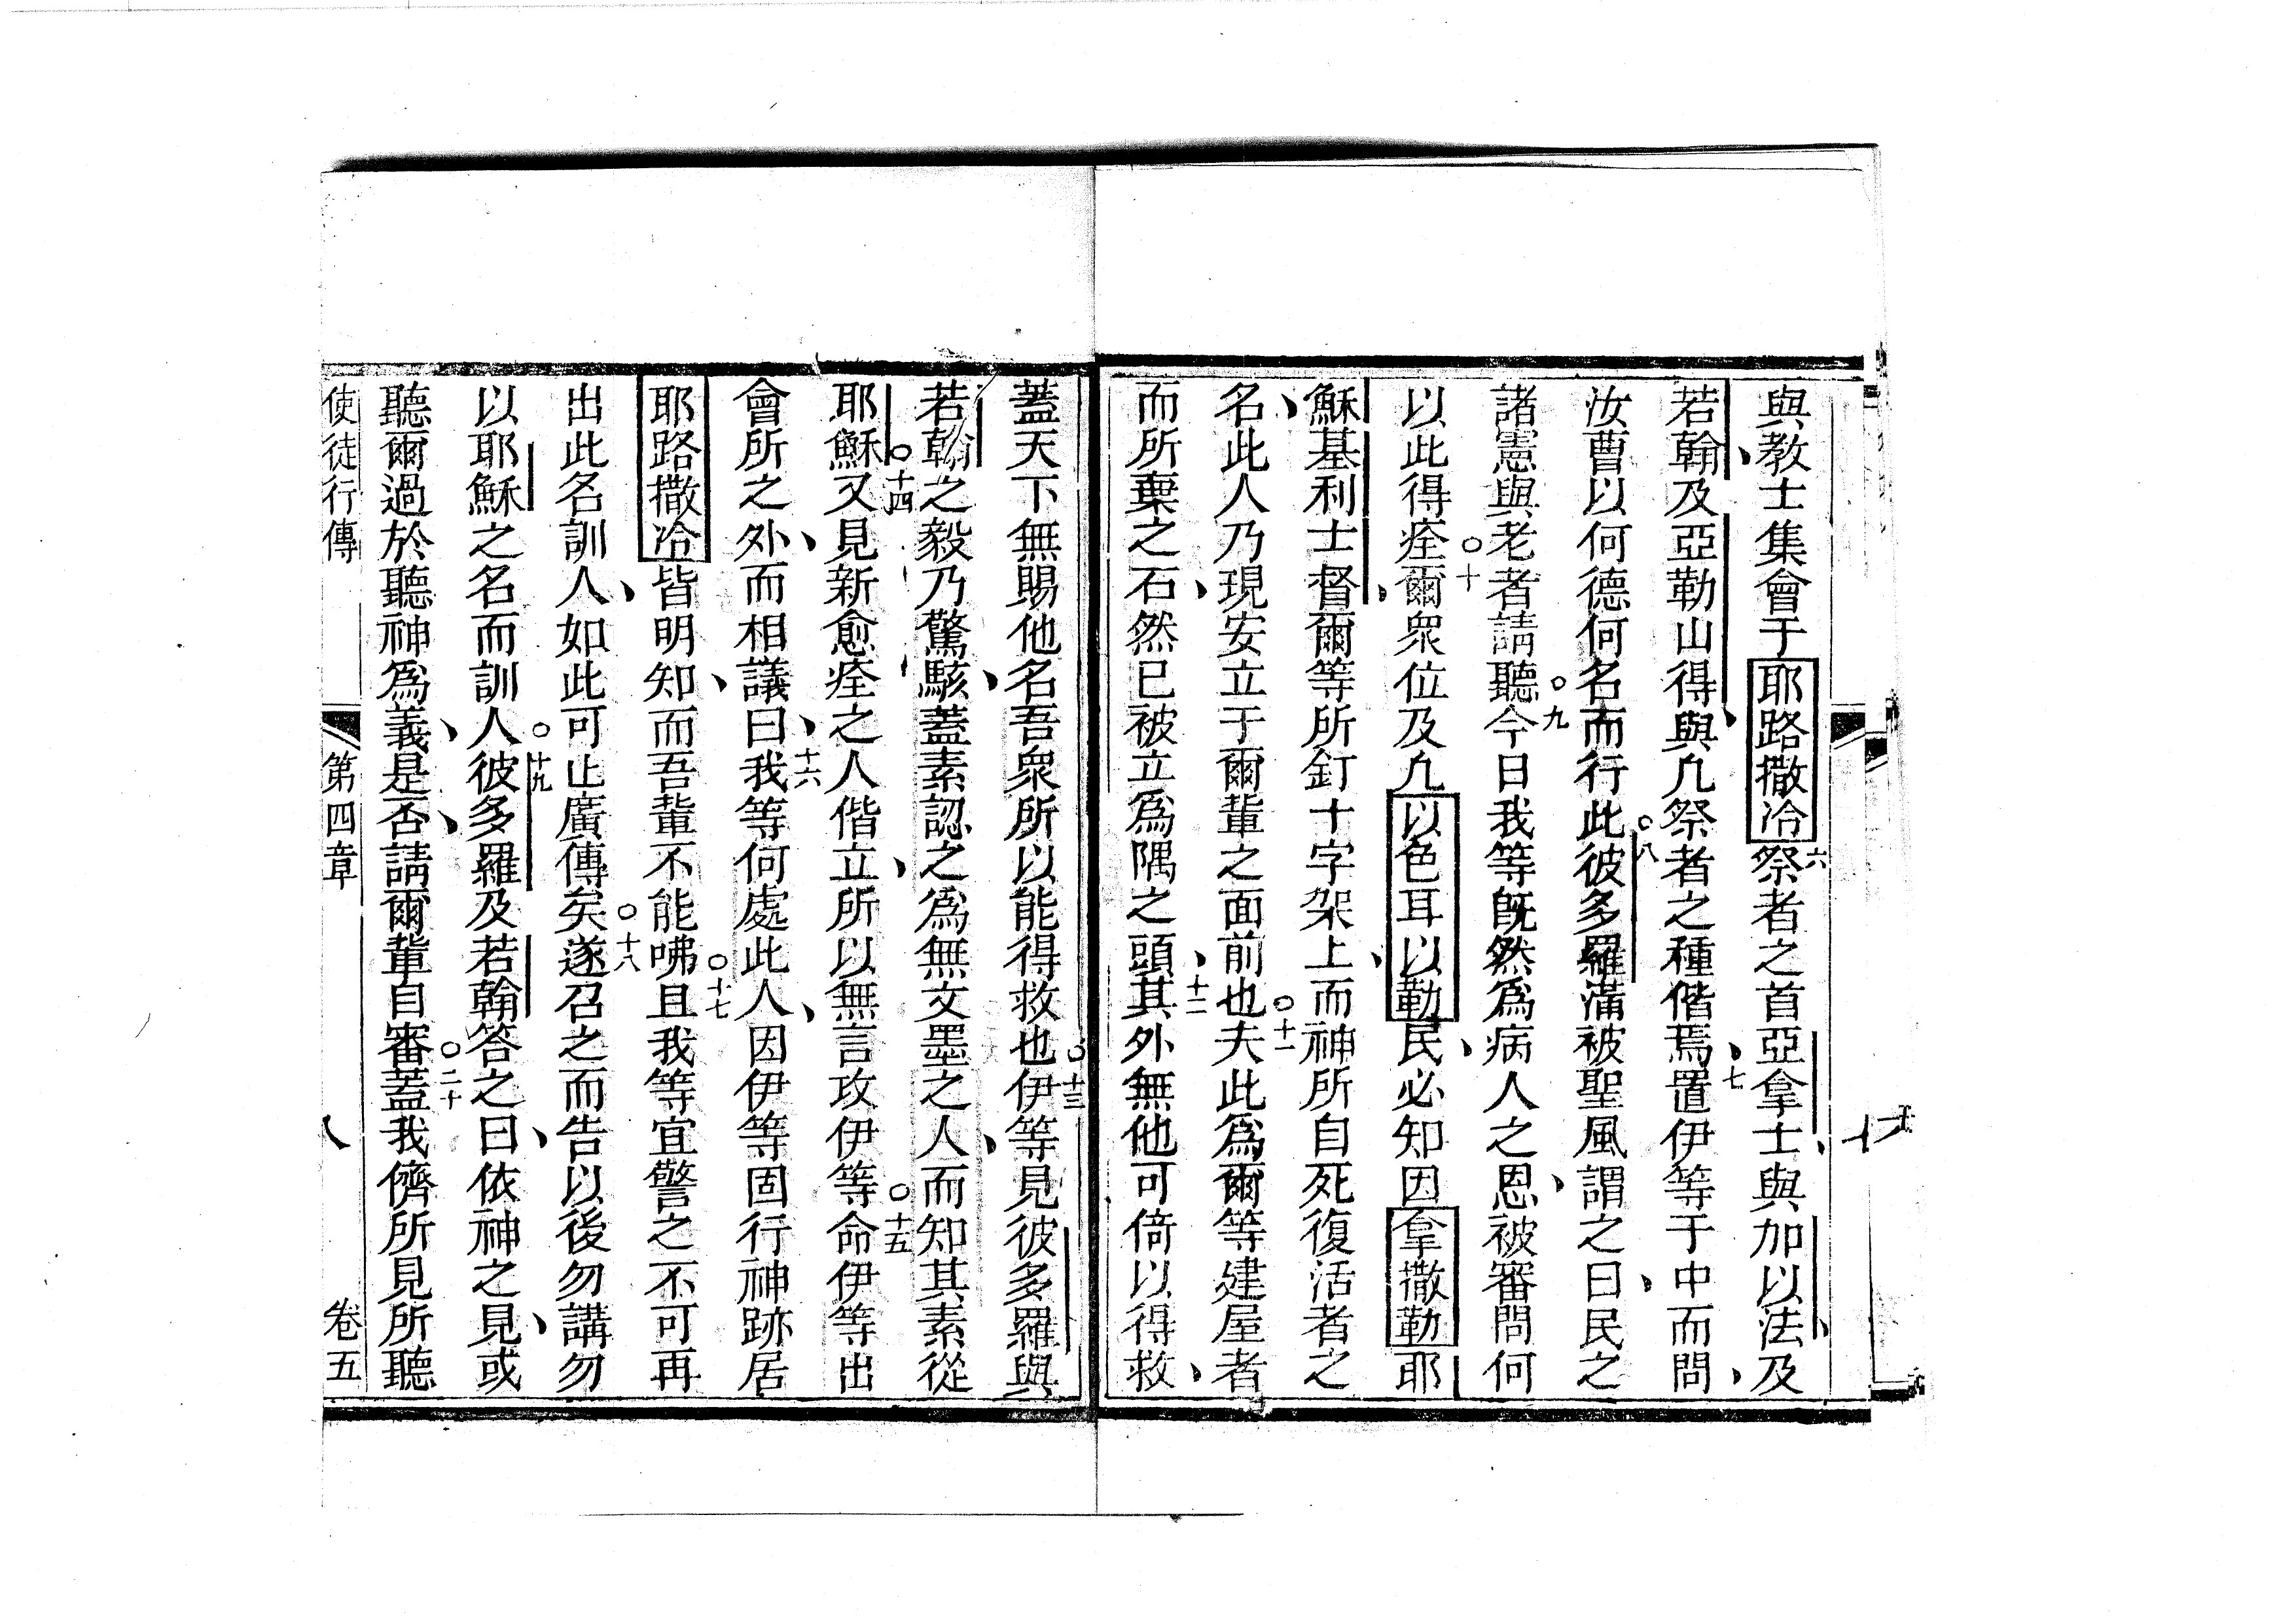 與教士集會于耶路撒冷六祭者之首亞拿士、與加以法、及
若翰、及亞勒山得、與凢祭者之種偕焉、七置伊等于中而問、
汝曹以何德何名而行此○八彼多羅滿被聖風謂之曰、民之
諸憲與老者請聽○九今日我等既然為病人之恩、被審問何
以此得痊○十爾眾位及凢以色耳以勒民、必知因拿撒勒耶
穌基利士督、爾等所釘十字架上、而神所自死復活者之
名、此人乃現安立于爾輩之面前也○十一夫此為爾等建屋者
而所棄之石、然已被立為隅之頭、十二其外無他可倚以得救、
蓋天下無賜他名吾眾所以能得救也○十三伊等見彼多羅與
若翰之毅乃驚駭、蓋素認之為無文墨之人、而知其素從
耶穌○十四又見新愈痊之人偕立、所以無言攻伊等○十五命伊等出
會所之外、而相議曰、十六我等何處此人、因伊等固行神跡居
耶路撒冷皆明知、而吾輩不能咈○十七且我等宜警之不可再
出此名訓人、如此可止廣傳矣○十八遂召之而告以後勿講勿
以耶穌之名而訓人○十九彼多羅及若翰答之曰、依神之見、或
聽爾過於聽神為義、是否、請爾輩自審○二十蓋我儕所見所聽
使徒行傳 第四章 八 卷五